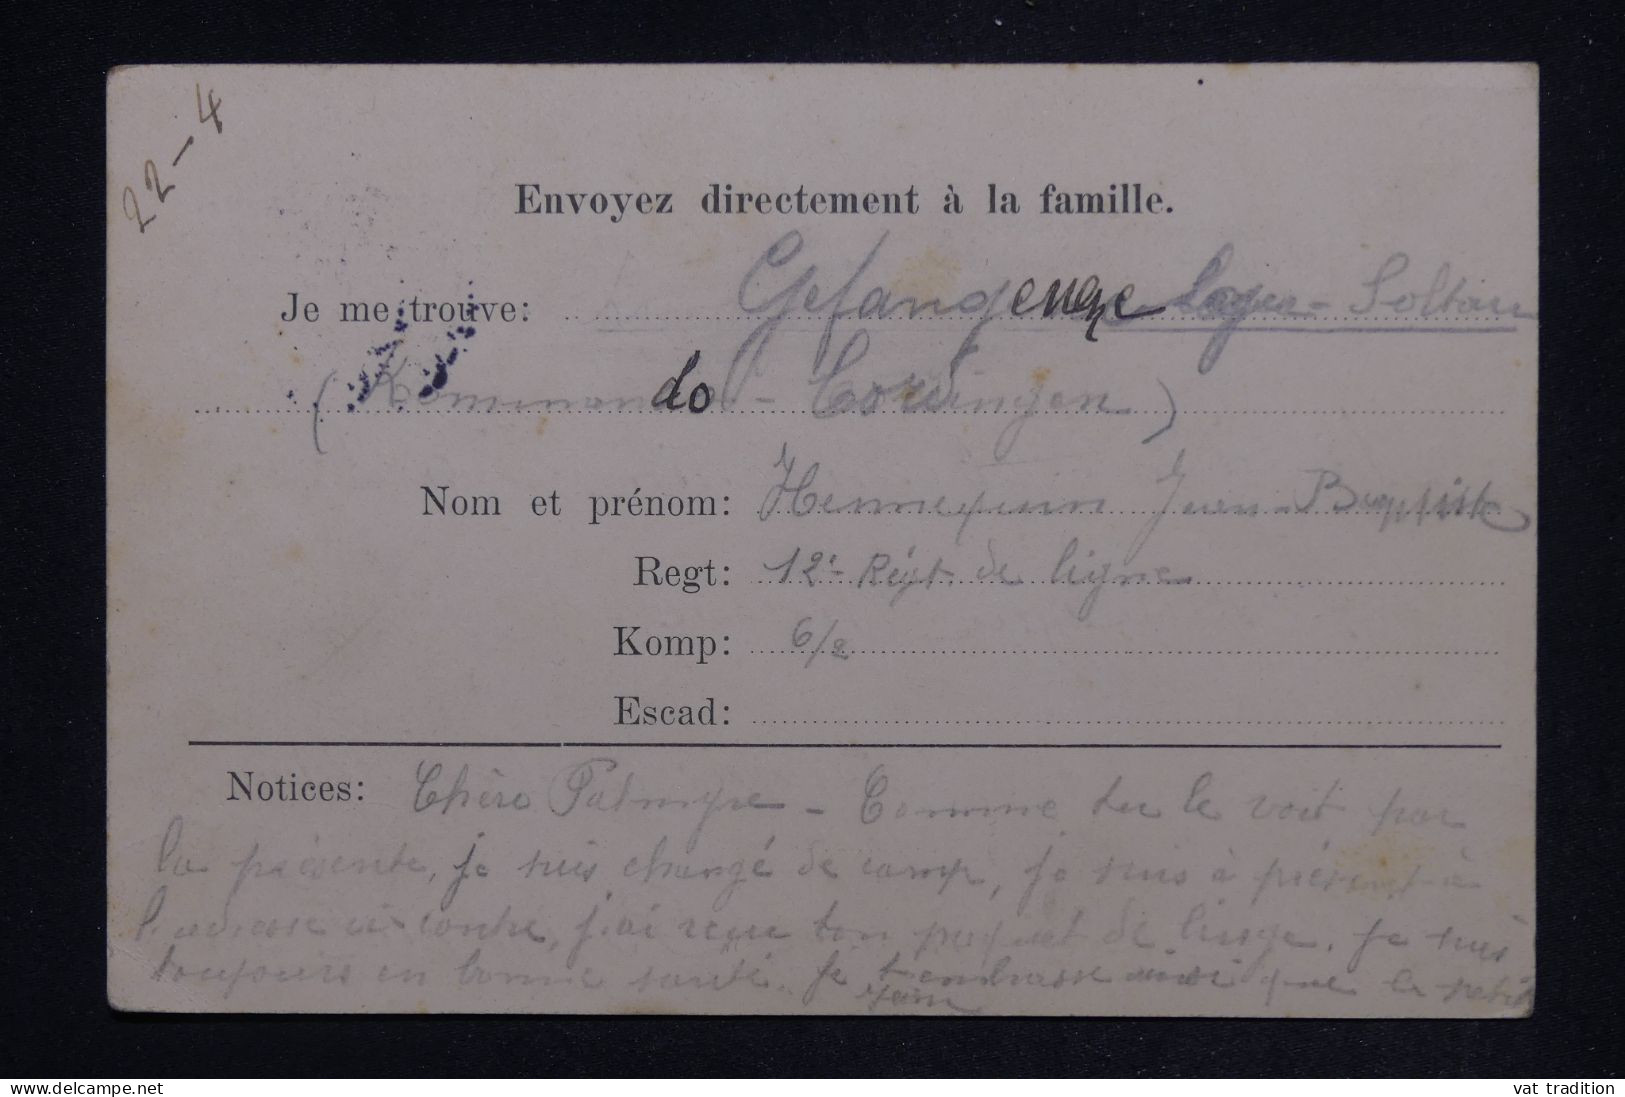 22-4
Envoyez directement à la famille.
Je me trouve: Gefangenen Lager - Soltau
(Kommando - Cordingen)
Nom et prénom: Hennequin Jean-Baptiste
Regt: 12e Régt de ligne
Komp: 6/2
Escad:
Notices: Chère Palmyre - Comme tu le voit par
la présente, je suis changé de camp, je suis à présent à
l'adresse ci-contre, j'ai reçu ton paquet de linge. Je suis
toujours en bonne santé. Je t'embrasse ainsi que le petit
Jean
www.delcampe.net
vat tradition